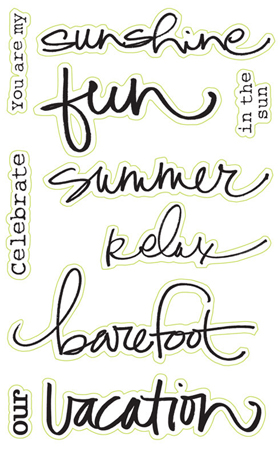 You are my
sunshine
fun
in the
sun
Celebrate
summer
relax
barefoot
our
vacation